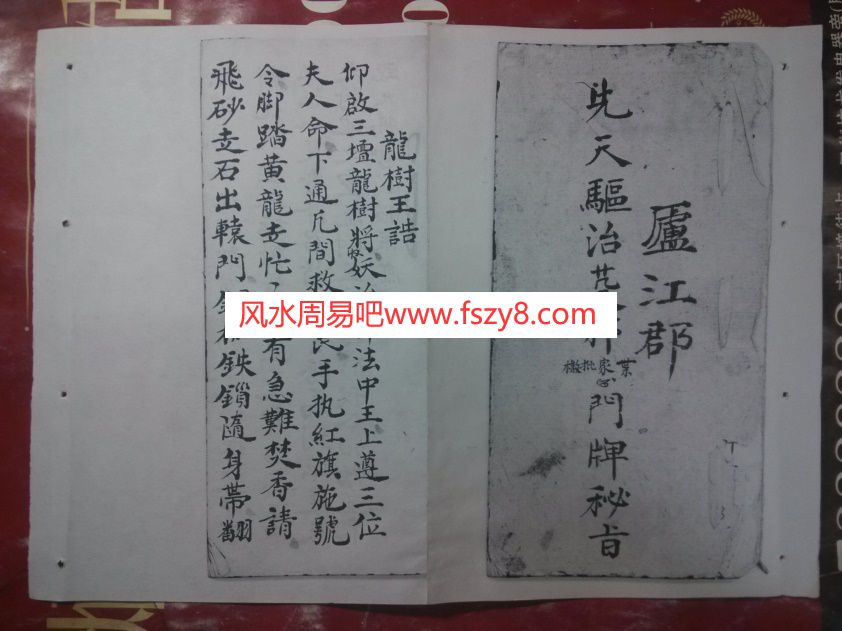 廬江郡
先天驅治
門牌秘旨
葉家批檄
龍樹王誥
仰啟三壇龍樹將 妖 法中王上遵三位
夫人命下通凡間救 民手执紅旗施號
令脚踏黄龍走忙 有急難焚香請
飛砂走石出轅門 鉄鎖隨身帶翻
风水周易吧www.fszy8.com